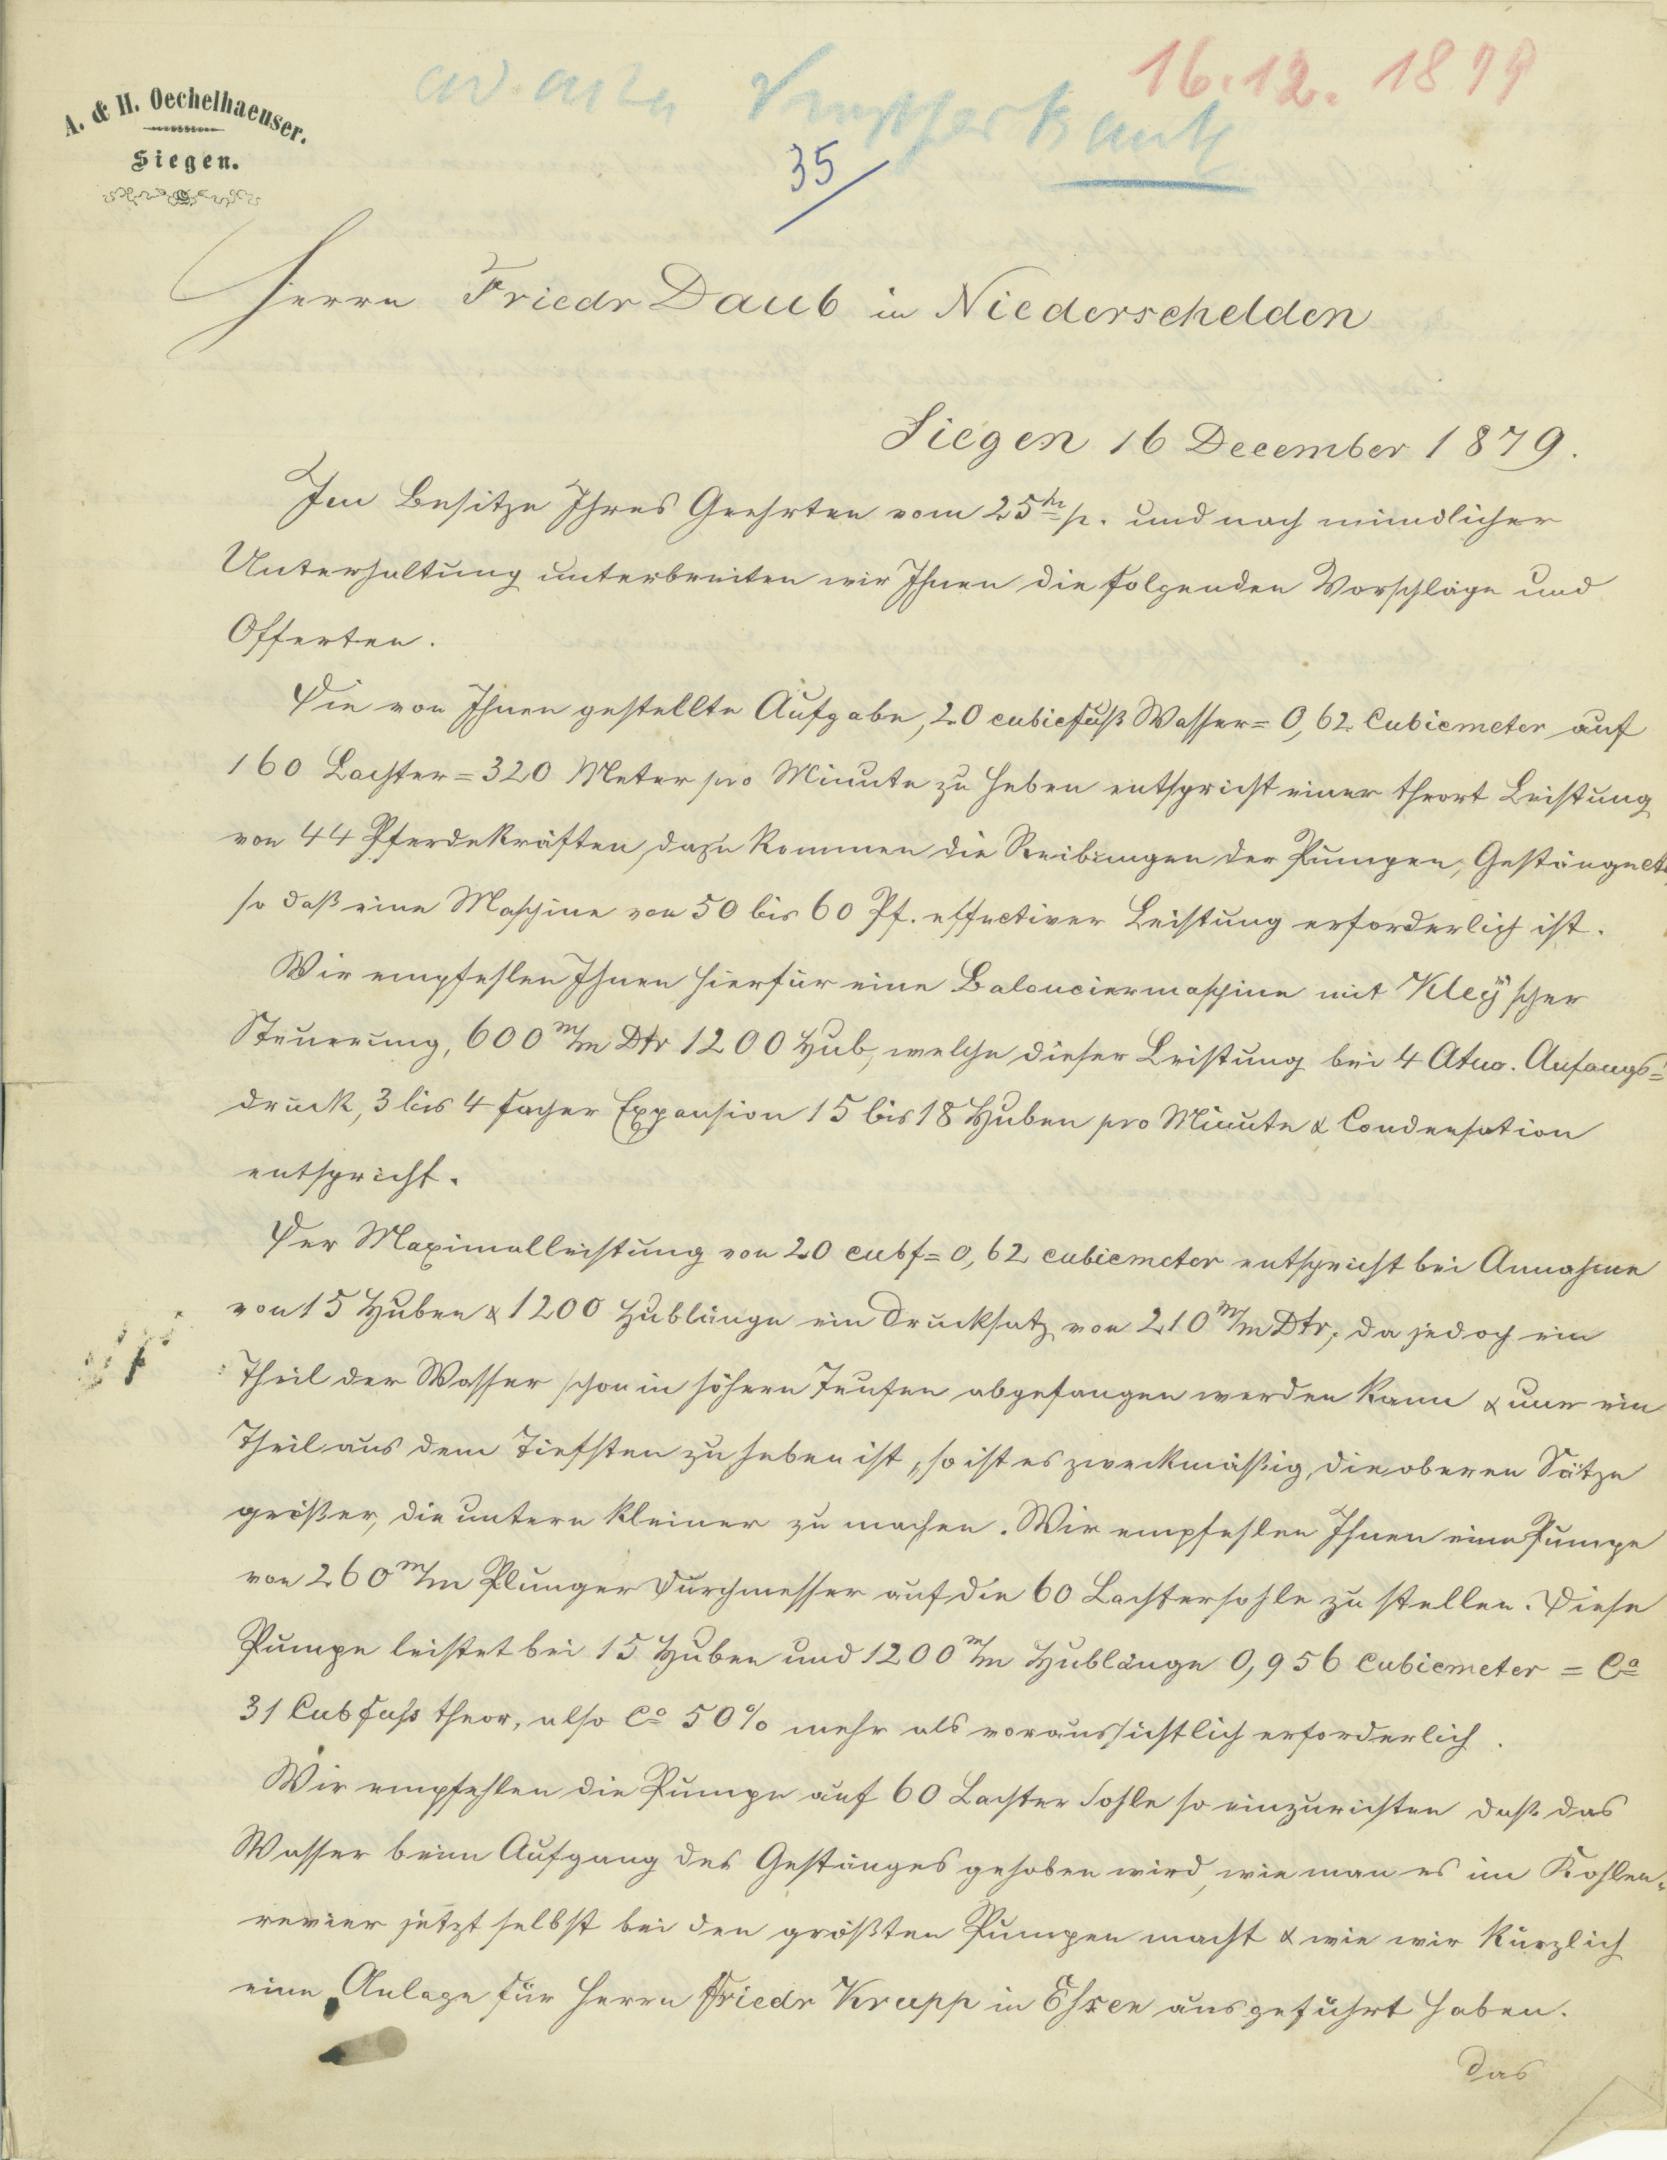 16.12.1879
ad acta
35
A. & H. Oechelhaeuser.
Siegen.
Herrn Friedr Daub in Niederschelden
Siegen 16 December 1879.
Im Besitze Ihres Geehrten vom 25ten p. und nach mündlicher
Unterhaltung unterbreiten wir Ihnen die folgenden Vorschläge und
Offerten.
Die von Ihnen gestellte Aufgabe, 20 cubicfuß Wasser = 0,62 Cubicmeter auf
160 Lachter = 320 Meter pro Minute zu heben entspricht einer theort Leistung
von 44 Pferdekräften, dazu kommen die Reibungen der Pumpen, Gestänge etc
so daß eine Maschine von 50 bis 60 Pf. effectiver Leistung erforderlich ist.
Wir empfehlen Ihnen hierfür eine Balanciermaschine mit Kleÿ'scher
Steuerung, 600 m/m Dtr 1200 Hub, welche dieser Leistung bei 4 Atm. Anfangs=
druck, 3 bis 4 facher Expansion 15 bis 18 Huben pro Minute & Condensation
entspricht.
Der Maximalleistung von 20 cubf = 0,62 cubicmeter entspricht bei Annahme
von 15 Huben & 1200 Hublänge ein Drucksatz von 210 m/m Dtr, da jedoch ein
Theil der Wasser schon in höhern Teufen abgefangen werden kann & nur ein
Theil aus dem Tiefsten zu heben ist, so ist es zweckmäßig, die oberen Sätze
größer, die untern kleiner zu machen. Wir empfehlen Ihnen eine Pumpe
von 260 m/m Plunger Durchmesser auf die 60 Lachtersohle zu stellen. Diese
Pumpe leistet bei 15 Huben und 1200 m/m Hublänge 0,956 Cubicmeter = Ca
31 Cubfuß theor, also Ca 50% mehr als voraussichtlich erforderlich.
Wir empfehlen die Pumpe auf 60 Lachter Sohle so einzurichten daß das
Wasser beim Aufgang des Gestänges gehoben wird, wie man es im Kohlen-
revier jetzt selbst bei den größten Pumpen macht & wie wir kürzlich
eine Anlage für Herrn Friedr Krupp in Essen ausgeführt haben.
Das